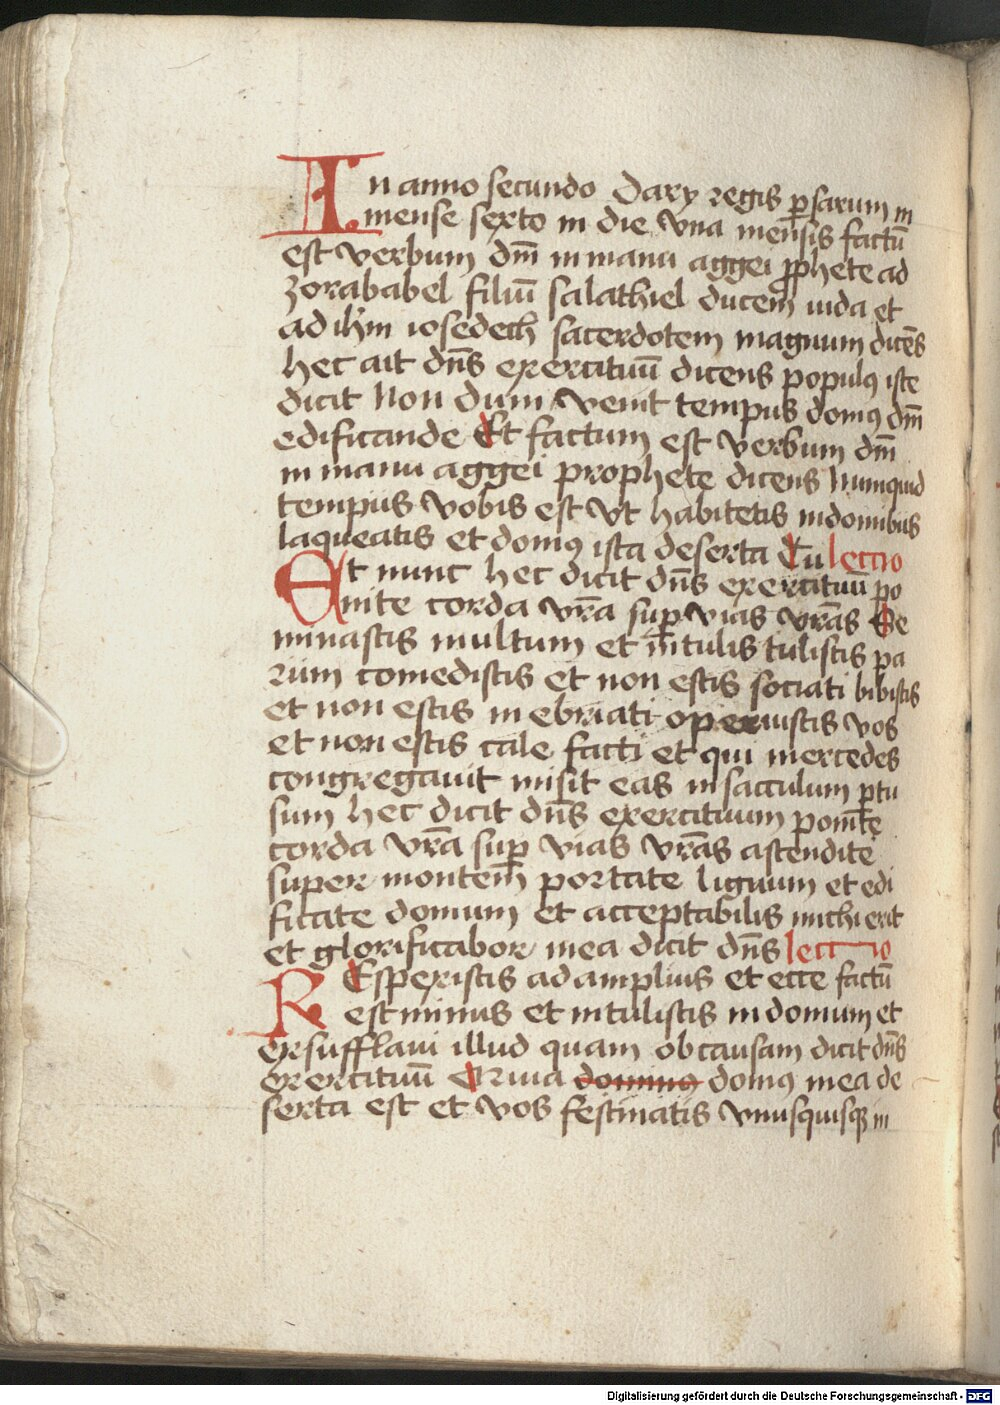 In anno secundo Dary regis ꝑsarum in
mense sexto in die vna mēsis factū
est verbum dn̄i in manu aggei ꝓphete ad
Zorababel filiū salathiel ducem iuda et
ad ih̄m iosedech sacerdotem magnum dicēs
hec ait dn̄s exercituū dicens populꝯ iste
dicit Non dum venit tempus domꝯ dn̄i
edificande Et factum est verbum dn̄i
in manu aggei prophete dicens Numquid
tempus vobis est vt habitetis in domibus
laqueatis et domꝯ ista deserta Tu lectio
Et nunc hec dicit dn̄s exercituū po
nite corda vr̄a suꝑ vias vr̄as Se
minastis multum et in̄tulis tulistis pa
rum comedistis et non estis sociati bibistis
et non estis in ebriati operuistis vos
et non estis cale facti et qui mercedes
congregauit misit eas in sacculum ꝑtu
sum hec dicit dn̄s exercituum ponite
corda vr̄a suꝑ vias vr̄as ascendite
super montem portate lignum et edi
ficate domum et acceptabilis michi erit
et glorificabor mea dicit dn̄s lectio
REspexistis ad amplius et ecce factū
est minus et intulistis in domum et
exsufflaui illud quam ob causam dicit dn̄s
exercituū Quia dominꝯ domꝯ mea de
serta est et vos festinatis vnusquisqꝫ in
Digitalisierung gefördert durch die Deutsche Forschungsgemeinschaft - DFG